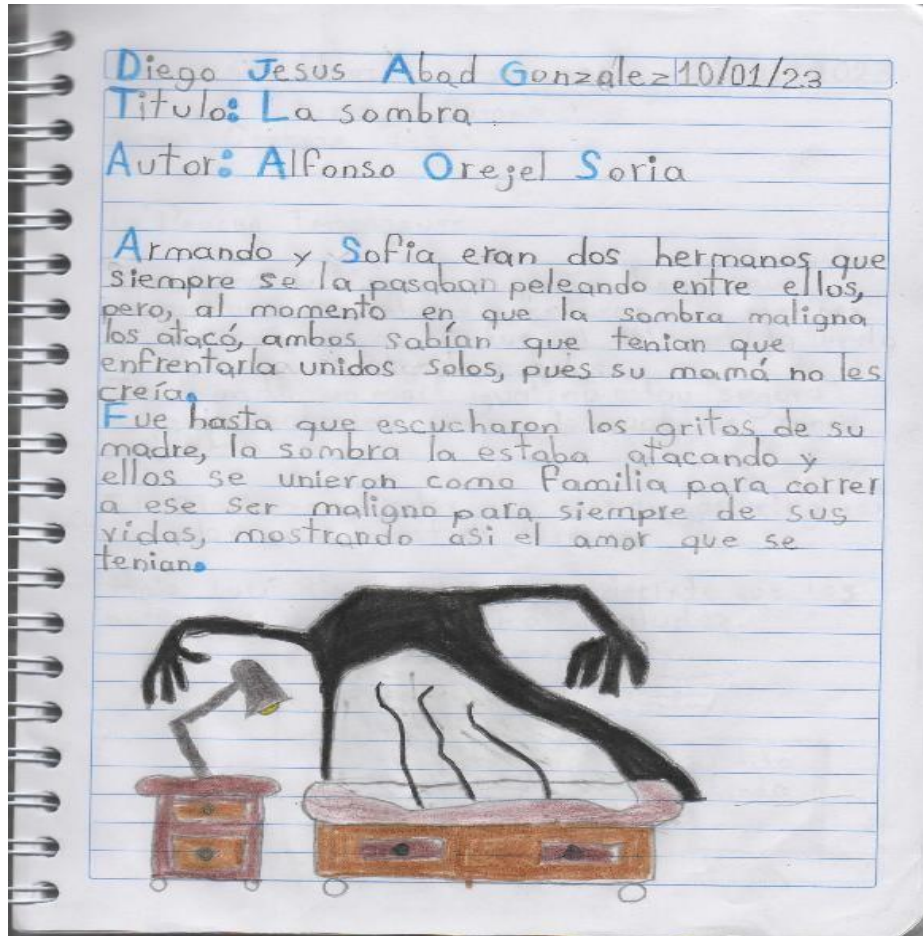 Diego Jesus Abad González 10/01/23
Titulo: La sombra.
Autor: Alfonso Orejel Soria
Armando y Sofia eran dos hermanos que
siempre se la pasaban peleando entre ellos,
pero, al momento en que la sombra maligna
los atacó, ambos sabían que tenian que
enfrentarla unidos solos, pues su mamá no les
creía.
Fue hasta que escucharon los gritos de su
madre, la sombra la estaba atacando y
ellos se unieron como familia para correr
a ese ser maligno para siempre de sus
vidas, mostrando asi el amor que se
tenian.